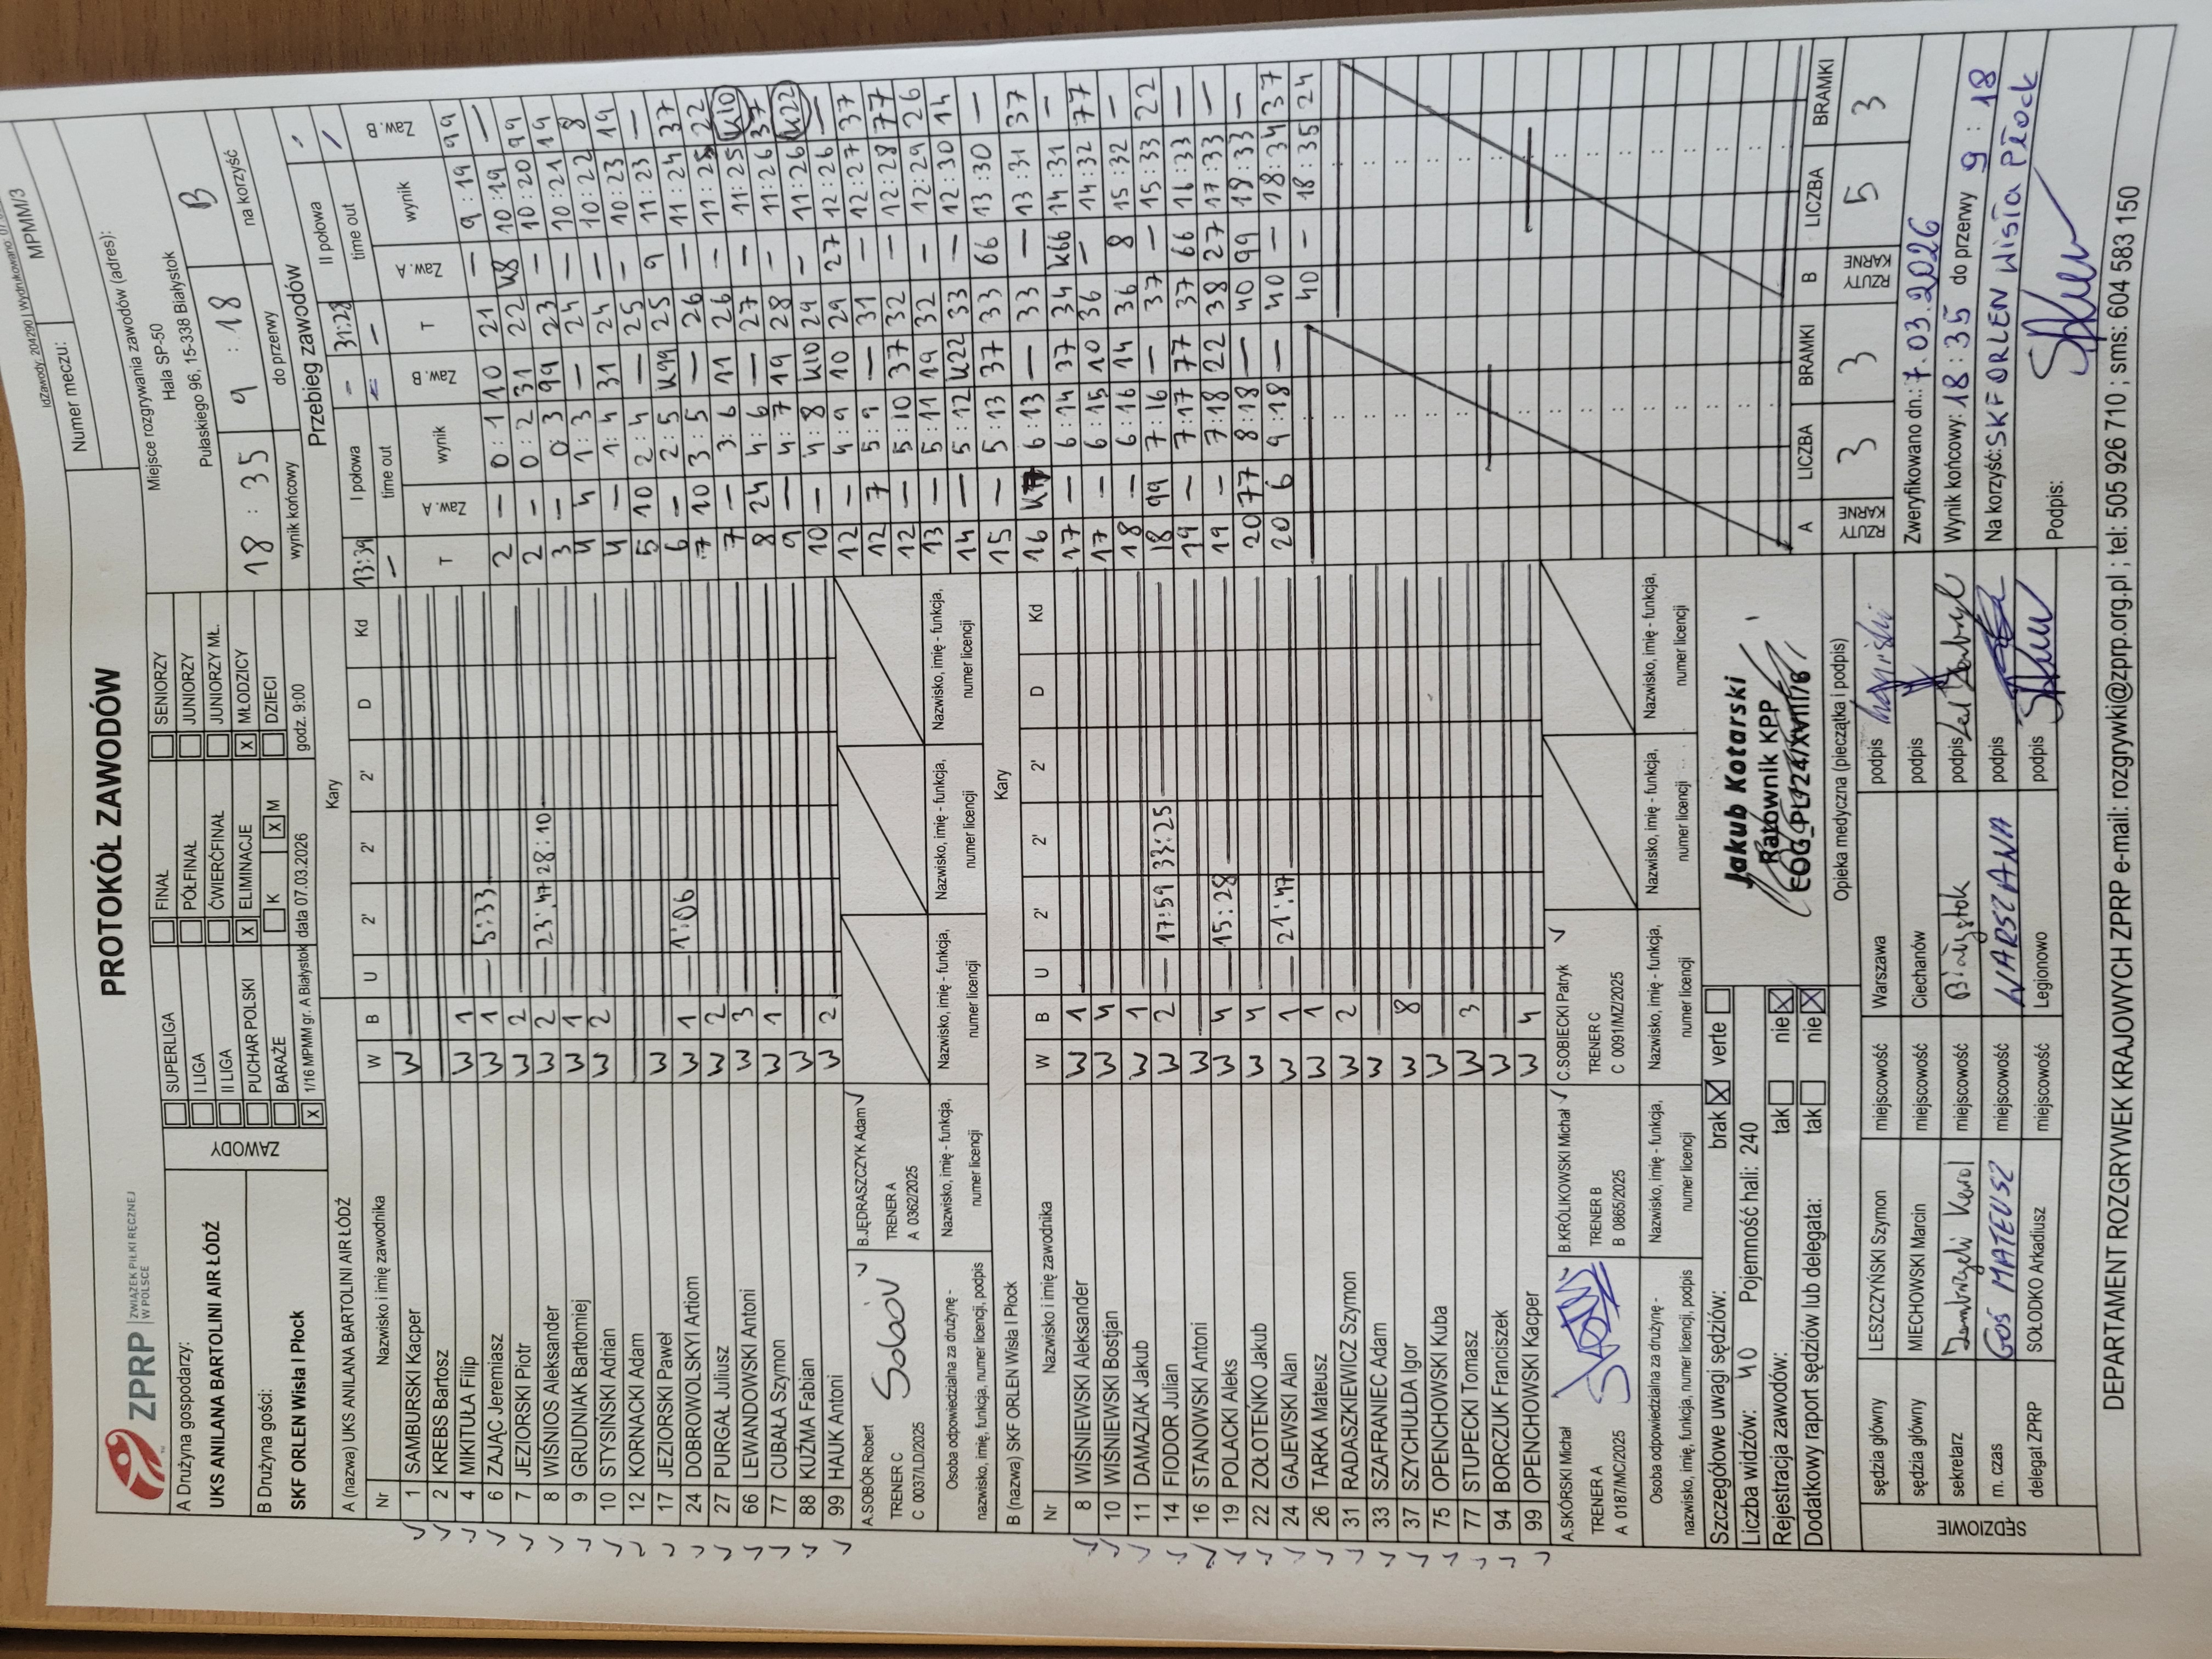 IdZawody: 204290 | Wydrukowano: 07
Numer meczu:
MPMM/3
ZPRP ZWIĄZEK PIŁKI RĘCZNEJ W POLSCE
PROTOKÓŁ ZAWODÓW
A Drużyna gospodarzy:
UKS ANILANA BARTOLINI AIR ŁÓDŹ
B Drużyna gości:
SKF ORLEN Wisła I Płock
ZAWODY
SUPERLIGA
I LIGA
II LIGA
PUCHAR POLSKI
BARAŻE
X 1/16 MPMM gr. A Białystok
FINAŁ
PÓŁFINAŁ
ĆWIERĆFINAŁ
X ELIMINACJE
K X M
data 07.03.2026
SENIORZY
JUNIORZY
JUNIORZY MŁ.
X MŁODZICY
DZIECI
godz. 9:00
Miejsce rozgrywania zawodów (adres):
Hala SP-50
Pułaskiego 96, 15-338 Białystok
18 : 35 9 : 18 B
wynik końcowy do przerwy na korzyść
A (nazwa) UKS ANILANA BARTOLINI AIR ŁÓDŹ
Kary
Nr Nazwisko i imię zawodnika W B U 2' 2' 2' D Kd
1 SAMBURSKI Kacper W
2 KREBS Bartosz
4 MIKITUŁA Filip W 1
6 ZAJĄC Jeremiasz W 1 — 5:33
7 JEZIORSKI Piotr W 2
8 WIŚNIOS Aleksander W 2 — 23:47 28:10
9 GRUDNIAK Bartłomiej W 1
10 STYSIŃSKI Adrian W 2
12 KORNACKI Adam
17 JEZIORSKI Paweł W
24 DOBROWOLSKYI Artiom W 1 — 1:06
27 PURGAŁ Juliusz W 2
66 LEWANDOWSKI Antoni W 3
77 CUBAŁA Szymon W 1
88 KUŹMA Fabian W
99 HAUK Antoni W 2
A.SOBÓR Robert
TRENER C
C 0037/LD/2025
B.JĘDRASZCZYK Adam
TRENER A
A 0362/2025
Osoba odpowiedzialna za drużynę - nazwisko, imię, funkcja, numer licencji, podpis
Nazwisko, imię - funkcja, numer licencji
Nazwisko, imię - funkcja, numer licencji
Nazwisko, imię - funkcja, numer licencji
Nazwisko, imię - funkcja, numer licencji
B (nazwa) SKF ORLEN Wisła I Płock
Kary
Nr Nazwisko i imię zawodnika W B U 2' 2' 2' D Kd
8 WIŚNIEWSKI Aleksander W 1
10 WIŚNIEWSKI Bostjan W 4
11 DAMAZIAK Jakub W 1
14 FIODOR Julian W 2 — 17:59 33:25
16 STANOWSKI Antoni W
19 POLACKI Aleks W 4 — 15:28
22 ZOŁOTEŃKO Jakub W 4
24 GAJEWSKI Alan W 1 — 21:47
26 TARKA Mateusz W 1
31 RADASZKIEWICZ Szymon W 2
33 SZAFRANIEC Adam W
37 SZYCHUŁDA Igor W 8
75 OPENCHOWSKI Kuba W
77 STUPECKI Tomasz W 3
94 BORCZUK Franciszek W
99 OPENCHOWSKI Kacper W 4
A.SKÓRSKI Michał
TRENER A
A 0187/MC/2025
B.KRÓLIKOWSKI Michał
TRENER B
B 0865/2025
C.SOBIECKI Patryk
TRENER C
C 0091/MZ/2025
Osoba odpowiedzialna za drużynę - nazwisko, imię, funkcja, numer licencji, podpis
Nazwisko, imię - funkcja, numer licencji
Nazwisko, imię - funkcja, numer licencji
Nazwisko, imię - funkcja, numer licencji
Nazwisko, imię - funkcja, numer licencji
Przebieg zawodów
13:39 I połowa — 31:28 II połowa
time out time out
T Zaw. A wynik Zaw. B T Zaw. A wynik Zaw. B
2 — 0:1 10 21 — 9:19 99
2 — 0:2 31 22 K8 10:19 —
3 — 0:3 99 23 — 10:20 99
4 4 1:3 — 24 — 10:21 19
4 — 1:4 31 24 — 10:22 8
5 10 2:4 — 25 — 10:23 19
6 — 2:5 K99 25 9 11:23 —
7 10 3:5 — 26 — 11:24 37
7 — 3:6 11 26 — 11:25 22
8 24 4:6 — 27 — 11:25 K10
9 — 4:7 19 28 — 11:26 37
10 — 4:8 K10 29 — 11:26 K22
12 — 4:9 10 29 27 12:26 —
12 7 5:9 — 31 — 12:27 37
12 — 5:10 37 32 — 12:28 77
13 — 5:11 19 32 — 12:29 26
14 — 5:12 K22 33 — 12:30 14
15 — 5:13 37 33 66 13:30 —
16 6:13 — 33 — 13:31 37
17 — 6:14 37 34 K66 14:31 —
17 — 6:15 10 36 — 14:32 77
18 — 6:16 14 36 8 15:32 —
18 99 7:16 — 37 — 15:33 22
19 — 7:17 77 37 66 16:33 —
19 — 7:18 22 38 27 17:33 —
20 77 8:18 — 40 99 18:33 —
20 6 9:18 — 40 — 18:34 37
40 — 18:35 24
A RZUTY KARNE LICZBA 3 BRAMKI 3
B RZUTY KARNE LICZBA 5 BRAMKI 3
Szczegółowe uwagi sędziów: brak X verte
Liczba widzów: 40 Pojemność hali: 240
Rejestracja zawodów: tak nie X
Dodatkowy raport sędziów lub delegata: tak nie X
Jakub Kotarski
Ratownik KPP
Opieka medyczna (pieczątka i podpis)
SĘDZIOWIE
sędzia główny LESZCZYŃSKI Szymon miejscowość Warszawa podpis
sędzia główny MIECHOWSKI Marcin miejscowość Ciechanów podpis
sekretarz miejscowość Białystok podpis
m. czas GOŚ MATEUSZ miejscowość WARSZAWA podpis
delegat ZPRP SOŁODKO Arkadiusz miejscowość Legionowo podpis
Zweryfikowano dn.: 7.03.2026
Wynik końcowy: 18 : 35 do przerwy 9 : 18
Na korzyść: SKF ORLEN Wisła Płock
Podpis:
DEPARTAMENT ROZGRYWEK KRAJOWYCH ZPRP e-mail: rozgrywki@zprp.org.pl ; tel: 505 926 710 ; sms: 604 583 150